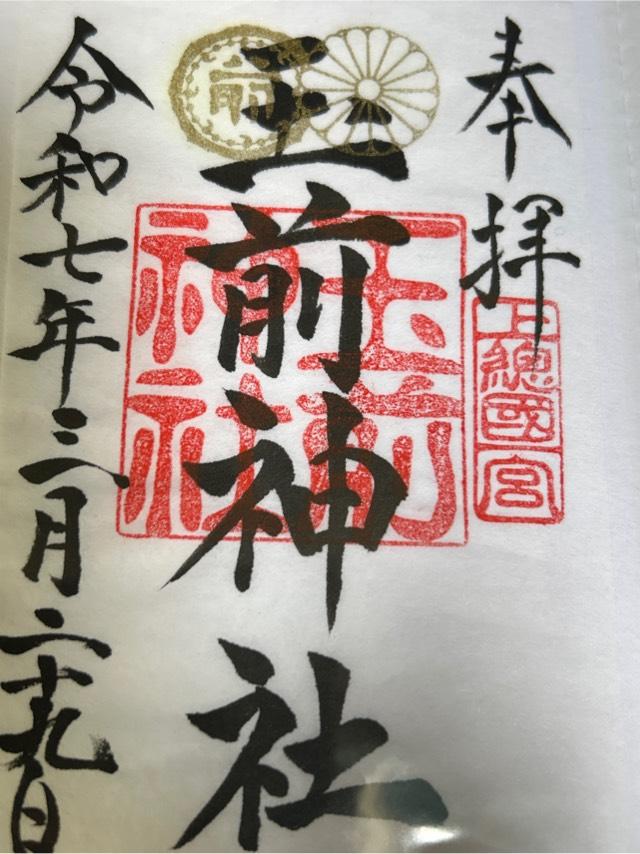 奉拝
上總國一宮
玉前神社
玉前
神社
令和七年三月二十九日